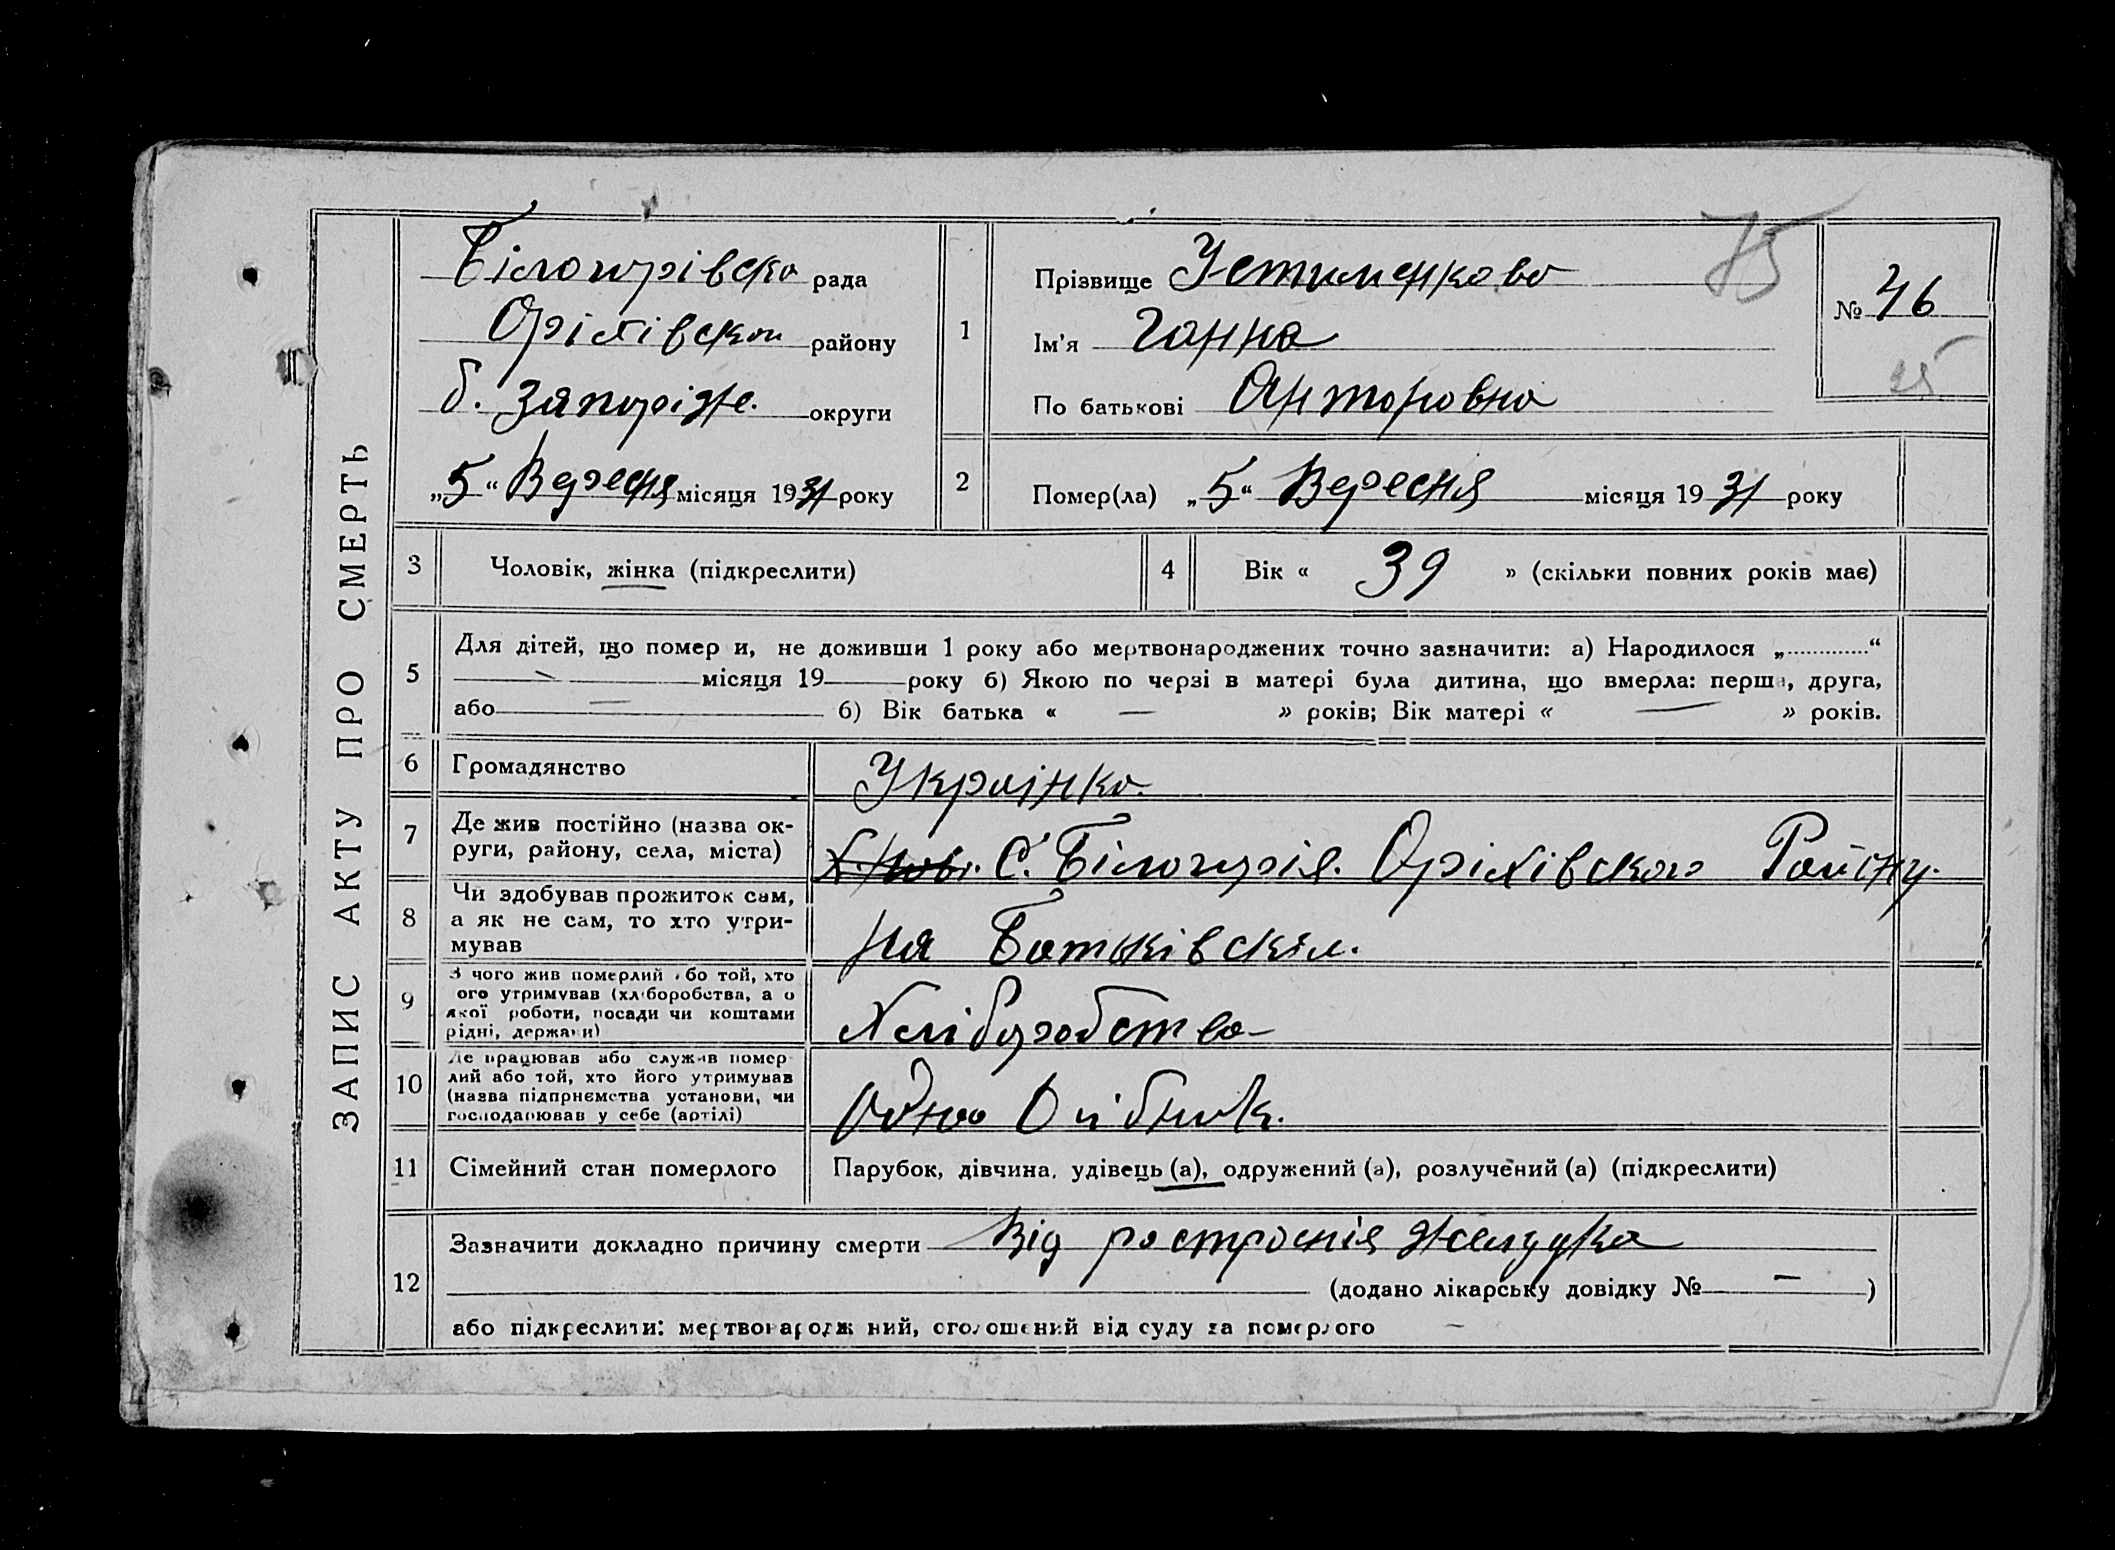 ЗАПИС АКТУ ПРО СМЕРТЬ
Білогорівска рада
Оріхівского району
б. Запоріж. округи
„5“ Вересня місяця 1931 року
1
Прізвище Устименкова
Ім'я Ганна
По батькові Антоновна
75
№ 46
2
Помер(ла) „5“ Вересня місяця 1931 року
3 Чоловік, жінка (підкреслити)
4 Вік « 39 » (скільки повних років має)
5
Для дітей, що помер и, не доживши 1 року або мертвонароджених точно зазначити: а) Народилося „.............“
— місяця 19 року б) Якою по черзі в матері була дитина, що вмерла: перша, друга,
або — б) Вік батька « — » років; Вік матері « — » років.
6 Громадянство Українка
7 Де жив постійно (назва ок-
руги, району, села, міста)
С. Білогорія. Оріхівского Району.
8 Чи здобував прожиток сам,
а як не сам, то хто утри-
мував
На Батьківскім.
9 З чого жив померлий або той, хто
ого утримував (хліборобства, а о
якої роботи, посади чи коштами
рідні, держави)
Хліборобства
10 Де працював або служив помер
лий або той, хто його утримував
(назва підприємства установи, чи
господарював у себе (артілі)
11 Сімейний стан померлого
Парубок, дівчина, удівець (а), одружений (а), розлучений (а) (підкреслити)
12
Зазначити докладно причину смерти Від ростроєнія желудка
(додано лікарську довідку № — )
або підкреслити: мертвонародж ний, оголошений від суду за померлого —